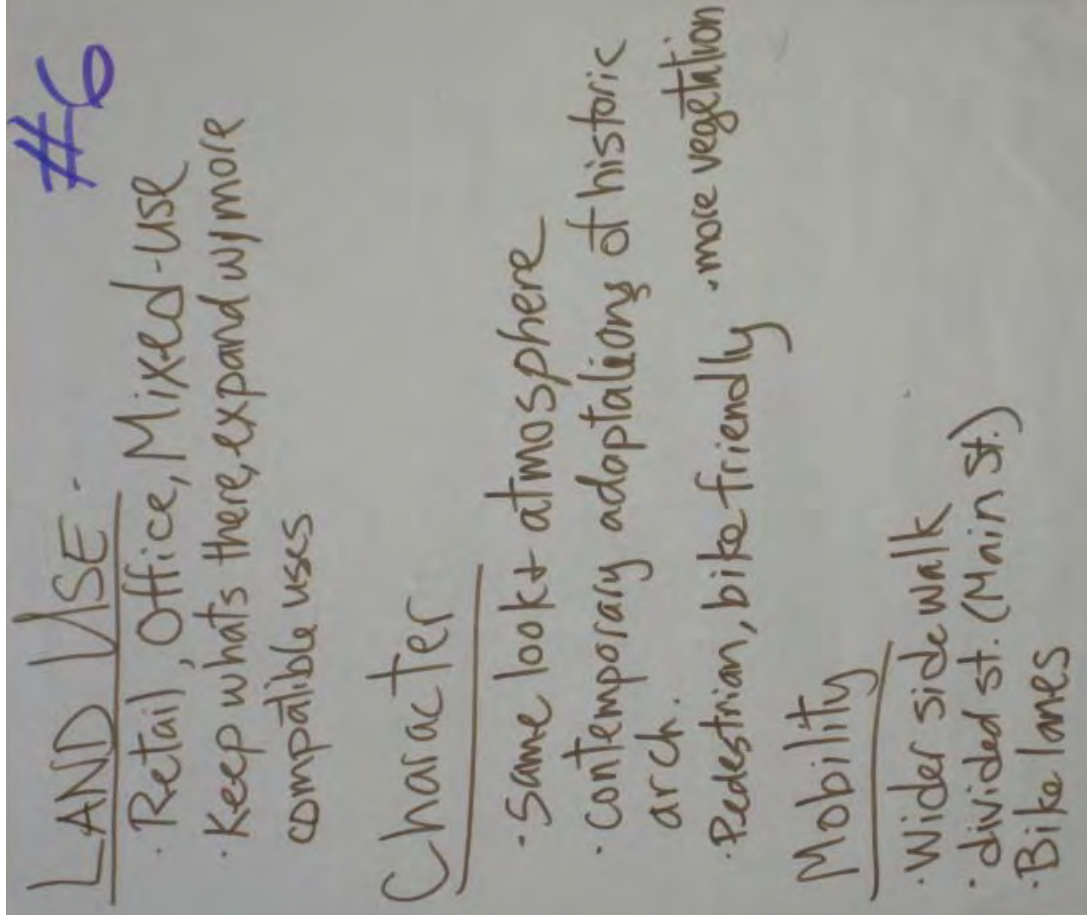 #6
LAND USE.
· Retail, Office, Mixed-Use
· Keep whats there, expand w/ more
compatible uses
Character
· Same look + atmosphere
· Contemporary adaptations of historic
arch.
· Pedestrian, bike friendly · more vegetation
Mobility
· Wider sidewalk
· divided st. (Main St.)
· Bike lanes